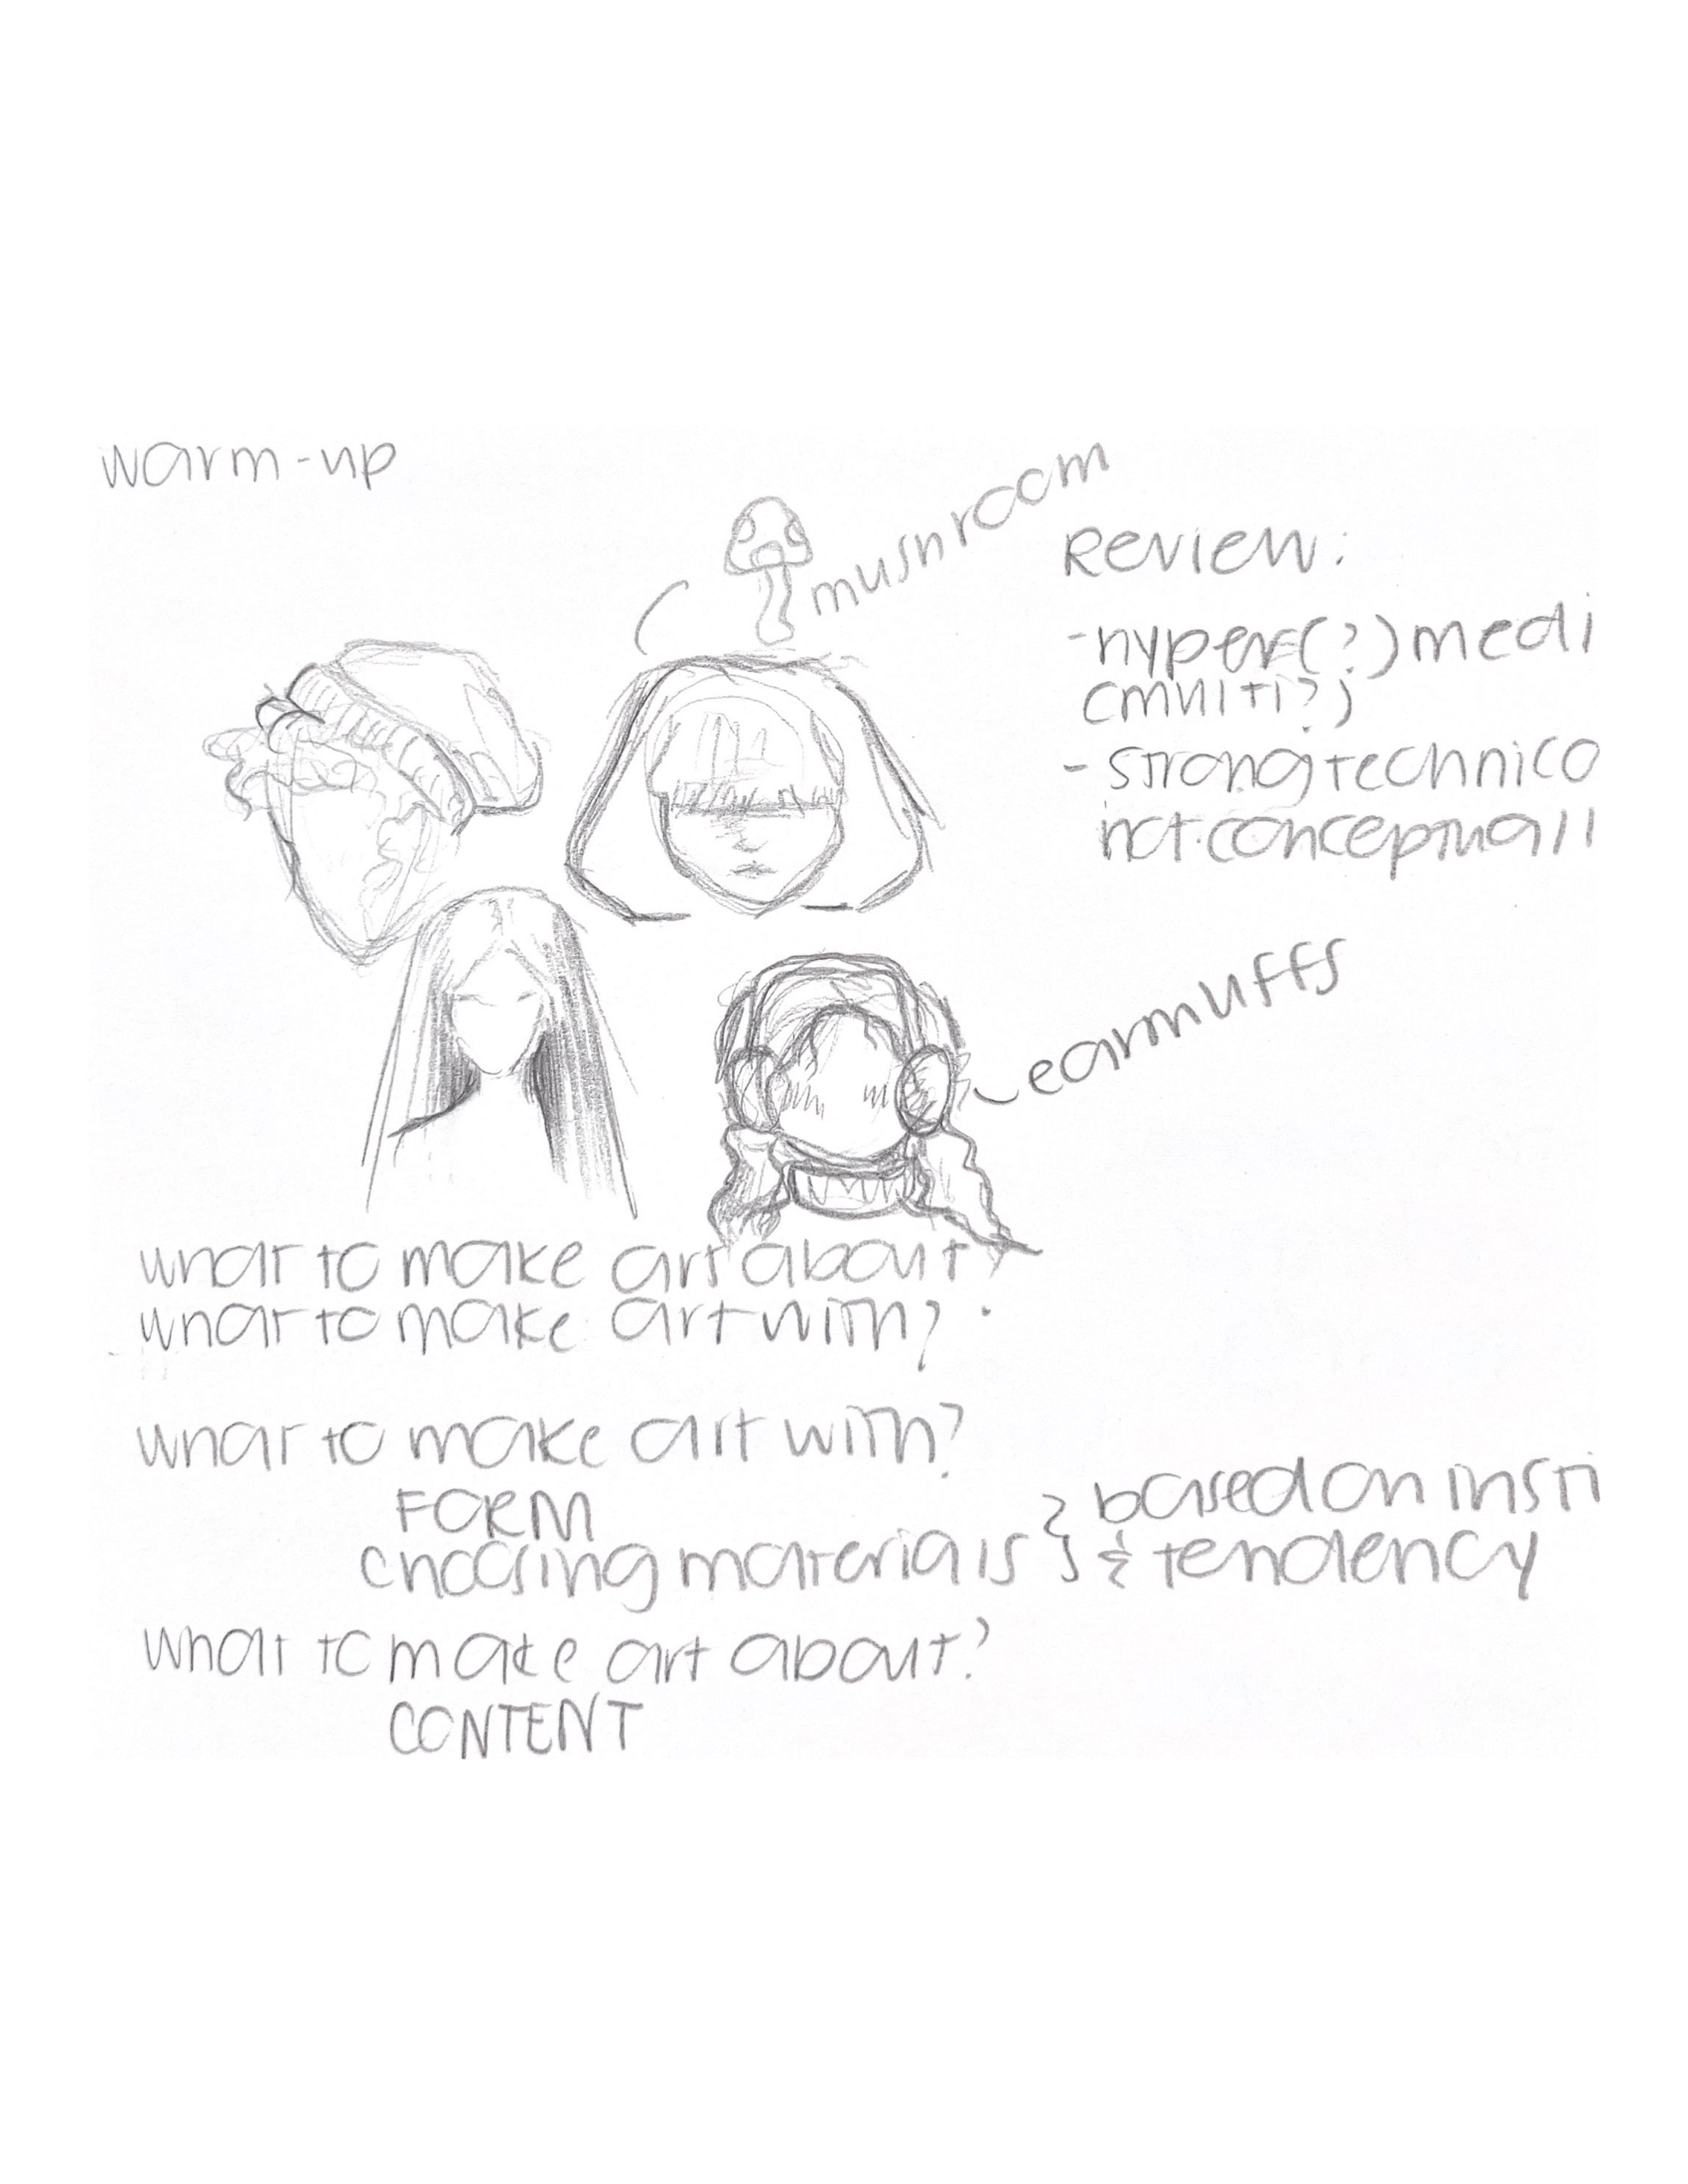 warm-up
mushroom
Review:
-hyper(?)medi
(multi?)
- strong technica
not conceptuall
earmuffs
what to make art about?
what to make art with?
what to make art with?
FORM
choosing materials } based on insti
& tendency
what to make art about?
CONTENT